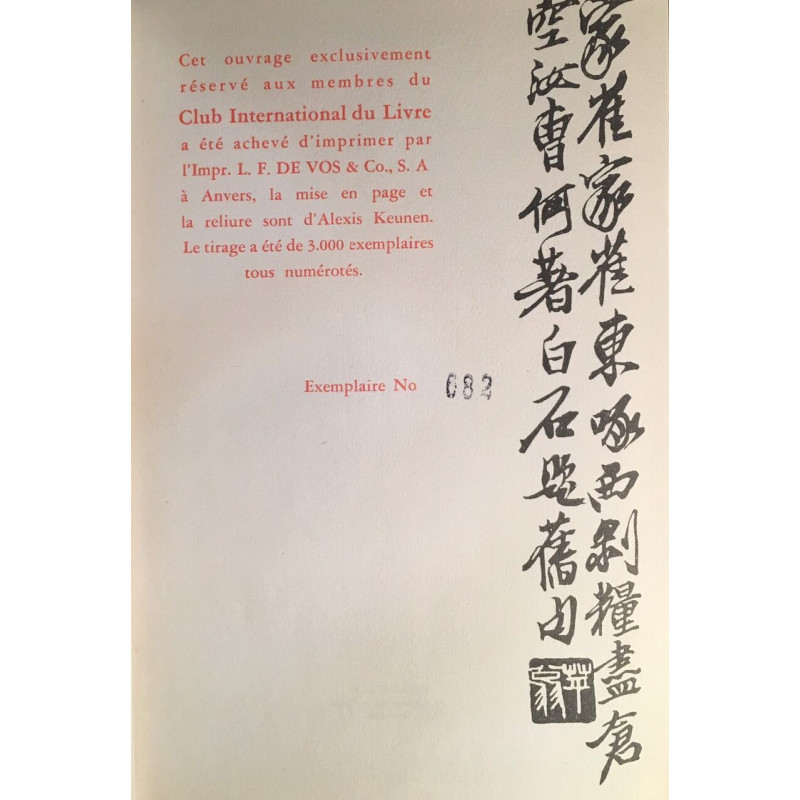 Cet ouvrage exclusivement
réservé aux membres du
Club International du Livre
a été achevé d'imprimer par
l'Impr. L. F. DE VOS & Co., S. A
à Anvers, la mise en page et
la reliure sont d'Alexis Keunen.
Le tirage a été de 3.000 exemplaires
tous numérotés.
Exemplaire No 682
家雀家雀東啄西剝糧盡倉
空汝曹何著白石題舊句